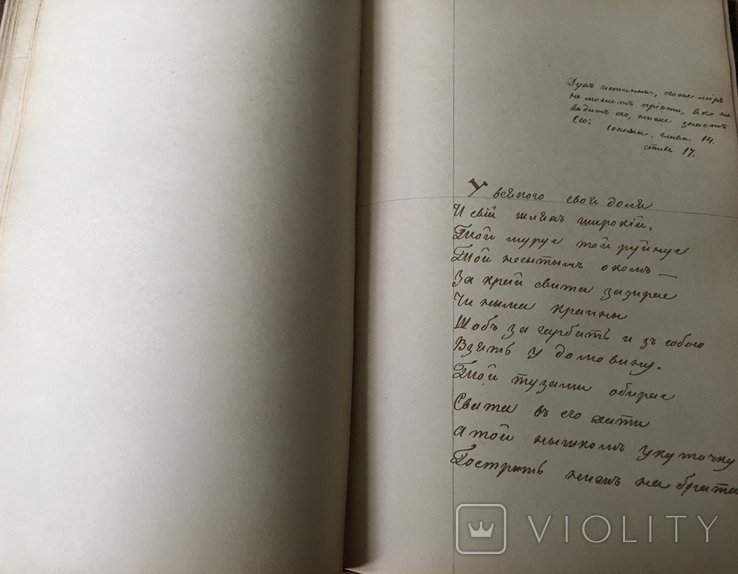 Духъ истины, его же міръ
не можетъ пріяти, яко не
видитъ его, ниже знаетъ
Его: Іоанна, глава 14.
стихъ 17.
У всякого своя доля
И свій шляхъ широкій,
Той муруе той руйнуе
Той неситымъ окомъ —
За край свита зазирае
Чи ныма краины
Щобъ загарбать и зъ собою
Взять у домовину.
Той тузами обирае
Свата въ его хати
А той нышкомъ у куточку
Гострыть нижъ на брата
VIOLITY